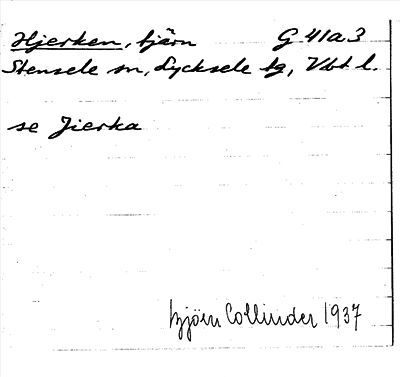 Hjerken, tjärn G 41a3
Stensele sn, Lycksele tg, Vbt l.
se Jierka
Björn Collinder 1937